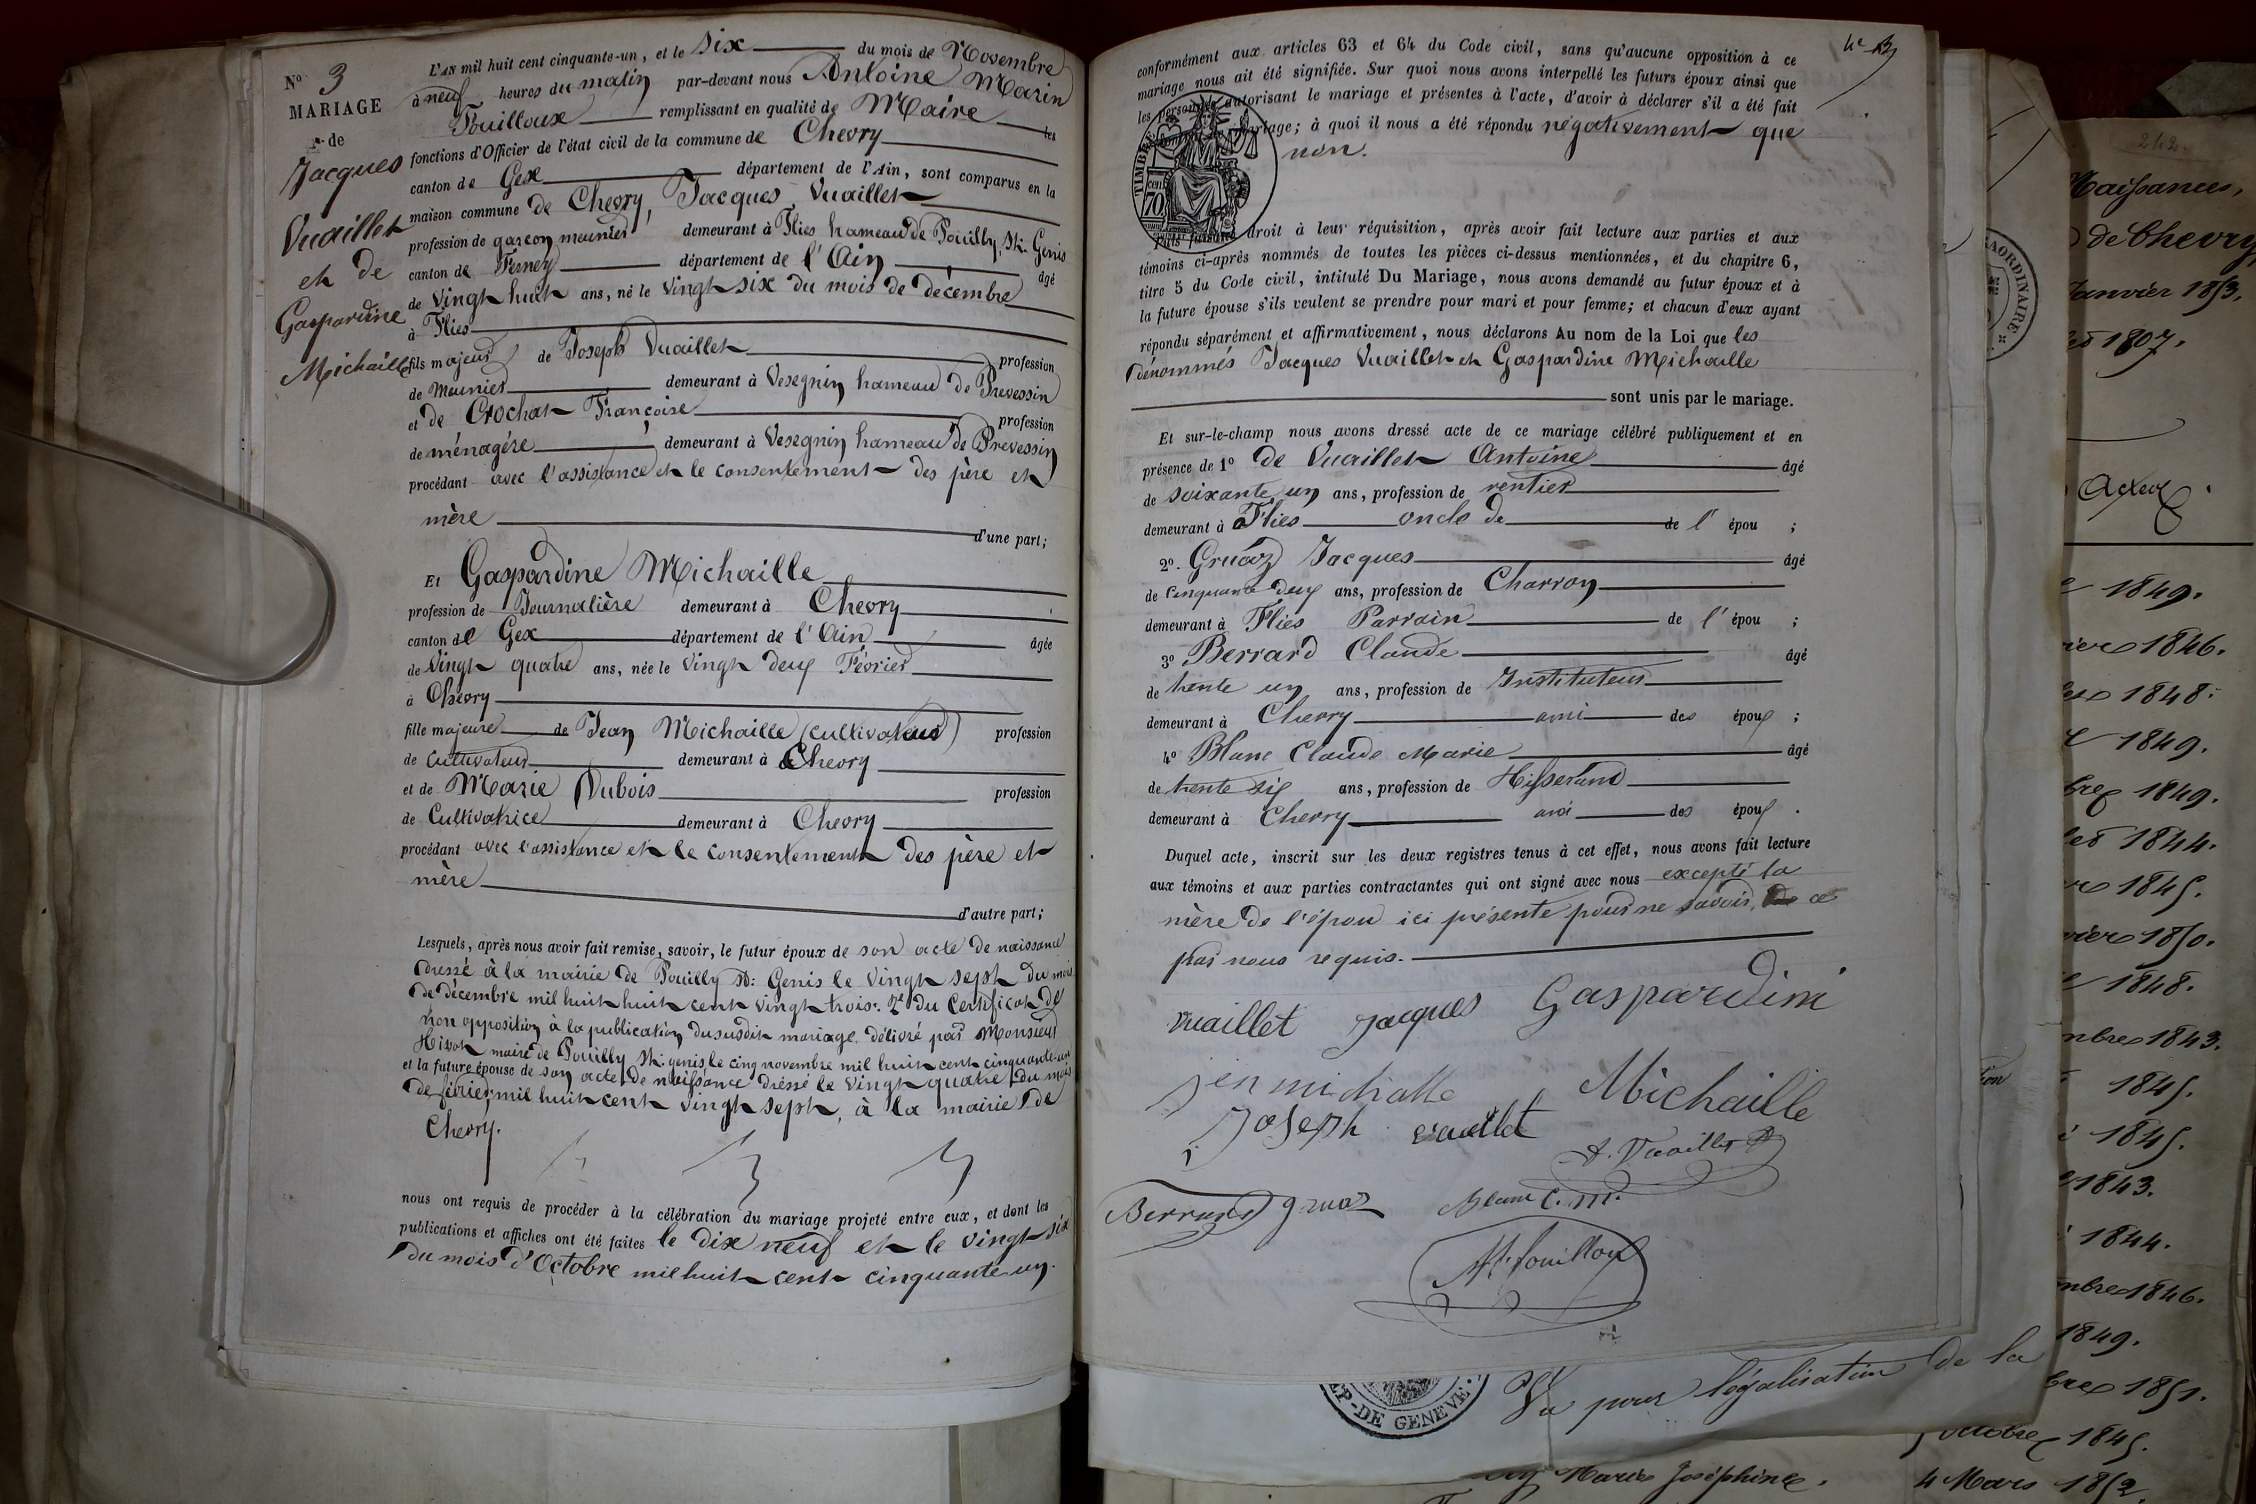 N° 3
MARIAGE
de
Jacques
Vuaillet
et de
Gaspardine
Michaille
L'AN mil huit cent cinquante-un, et le six du mois de Novembre
à neuf heures du matin par-devant nous Antoine Marin
Fouilloux remplissant en qualité de Maire les
fonctions d'Officier de l'état civil de la commune de Chevry
canton de Gex département de l'Ain, sont comparus en la
maison commune de Chevry, Jacques Vuaillet
profession de garçon meunier demeurant à Flies hameau de Pouilly St. Genis
canton de Ferney département de l'Ain âgé
de vingt huit ans, né le vingt six du mois de décembre
à Flies
fils majeur de Joseph Vuaillet profession
de Meunier demeurant à Vesegnin hameau de Prevessin
et de Crochat Françoise profession
de ménagère demeurant à Vesegnin hameau de Prevessin
procédant avec l'assistance et le consentement des père et
mère d'une part;
Et Gaspardine Michaille
profession de Journalière demeurant à Chevry
canton de Gex département de l'Ain âgée
de vingt quatre ans, née le vingt deux Février
à Chevry
fille majeure de Jean Michaille (cultivateur) profession
de Cultivateur demeurant à Chevry
et de Marie Dubois profession
de Cultivatrice demeurant à Chevry
procédant avec l'assistance et le consentement des père et
mère
d'autre part;
Lesquels, après nous avoir fait remise, savoir, le futur époux de son acte de naissance
dressé à la mairie de Pouilly St: Genis le vingt sept du mois
de décembre mil huit huit cent vingt trois: 2° du Certificat de
non opposition à la publication du susdit mariage délivré par Monsieur
maire de Pouilly St: genis, le cinq novembre mil huit cent cinquante-un
et la future épouse de son acte de naissance dressé le vingt quatre du mois
de février mil huit cent vingt sept, à la mairie de
Chevry.
nous ont requis de procéder à la célébration du mariage projeté entre eux, et dont les
publications et affiches ont été faites le dix neuf et le vingt six
du mois d'Octobre mil huit cent cinquante un.
conformément aux articles 63 et 64 du Code civil, sans qu'aucune opposition à ce
mariage nous ait été signifiée. Sur quoi nous avons interpellé les futurs époux ainsi que
les personnes autorisant le mariage et présentes à l'acte, d'avoir à déclarer s'il a été fait
mariage; à quoi il nous a été répondu négativement que
non.
TIMBRE
cen
70
Puis faisant droit à leur réquisition, après avoir fait lecture aux parties et aux
témoins ci-après nommés de toutes les pièces ci-dessus mentionnées, et du chapitre 6,
titre 5 du Code civil, intitulé Du Mariage, nous avons demandé au futur époux et à
la future épouse s'ils veulent se prendre pour mari et pour femme; et chacun d'eux ayant
répondu séparément et affirmativement, nous déclarons Au nom de la Loi que les
dénommés Jacques Vuaillet et Gaspardine Michaille
sont unis par le mariage.
Et sur-le-champ nous avons dressé acte de ce mariage célébré publiquement et en
présence de 1° de Vuaillet Antoine âgé
de soixante un ans, profession de rentier
demeurant à Flies oncle de de l'épou ;
2° Gruaz Jacques âgé
de cinquante deux ans, profession de Charron
demeurant à Flies Parrain de l'épou ;
3° Berrard Claude âgé
de trente un ans, profession de Instituteur
demeurant à Chevry ami des époux ;
4° Blanc Claude Marie âgé
de trente six ans, profession de Tisserand
demeurant à Chevry ami des époux .
Duquel acte, inscrit sur les deux registres tenus à cet effet, nous avons fait lecture
aux témoins et aux parties contractantes qui ont signé avec nous excepté la
mère de l'épou ici présente pour ne savoir de ce
par nous requis.
Vuaillet Jacques Gaspardine
Michaille
Joseph vuaillet
A. Vuaillet
Berrard gruaz Blanc C. M.
Fouilloux
DE GENEVE
Vu pour légalisation de la
242.
Naissances,
de Chevry
Janvier 1853.
1807.
Actes
1849.
1846.
1848.
1849.
1849.
1844.
1845.
1850.
1848.
1843.
1845.
1845.
1843.
1844.
1846.
1849.
1851.
octobre 1845.
Marie Joséphine. 4 Mars 1852
RAORDINAIRE